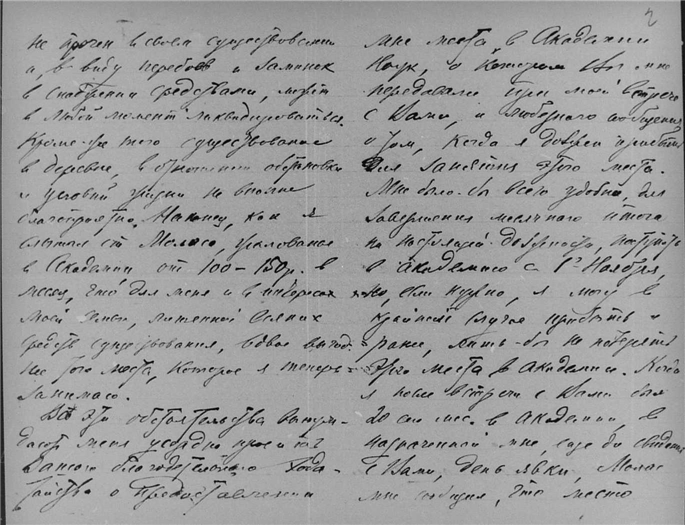 2
не прочен в своем существовании
а, в виду перебоев и заминок
в снабжении средствами, может
в любой момент ликвидироваться.
Кроме-же того существование
в деревне, в отношении обстановки
и условий жизни не вполне
благоприятно. Наконец, как я
от Молас, жалование
в Академии от 100–150 р. в
месяц, что для меня и в интересах
моей семьи, лишенной всяких
средств существования, вдвое выгод-
нее того места, которое я теперь
занимаю.
Все эти обстоятельства вынуж-
дают меня усердно просить
Вашего благодетельного хода-
тайства о предоставлении
мне места в Академии
Наук, о котором Вы мне
передавали при моей встрече
с Вами, и любезного сообщения
о том, когда я должен прибыть
для занятия этого места.
Мне было-бы всего удобно, для
завершения месячного итога
на настоящей должности, поступить
в Академию с 1го Ноября,
но, если нужно, я могу в
крайнем случае прибыть и
ранее, лишь-бы не потерять
этого места в Академии. Когда
я после встречи с Вами был
20 сего мес. в Академии, в
назначенный мне, еще до свидания
с Вами, день явки, Молас
мне сообщил, что место